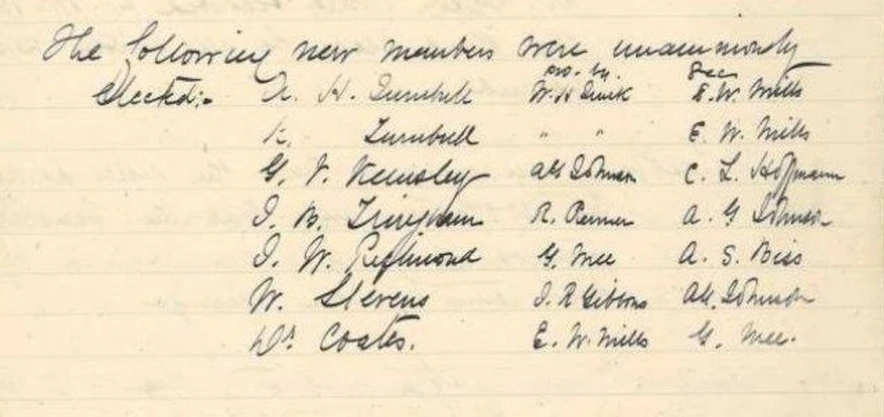 The following new members were unanimously
pro. by. Sec
Elected:- H. Turnbull W. H. E. W. Mills
Turnbull " " E. W. Mills
G. V. Kemsley A G Johnson C. L. Hoffmann
B. R. Renner A. G Johnson
J. W. Richmond G. Mee A. S. Biss
W. Stevens J. R Gibbons A G. Johnson
Dr Coates. E. W. Mills G. Mee.